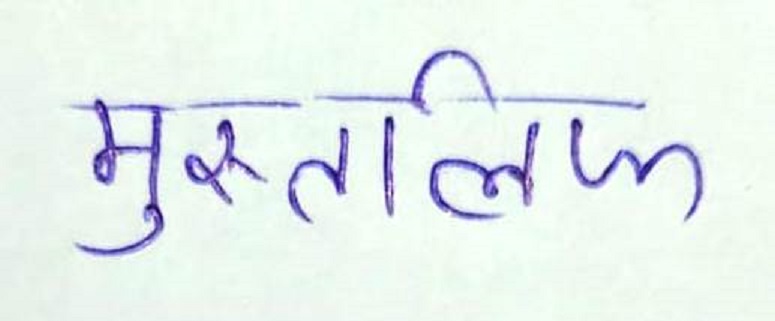 मुस्तालिफ